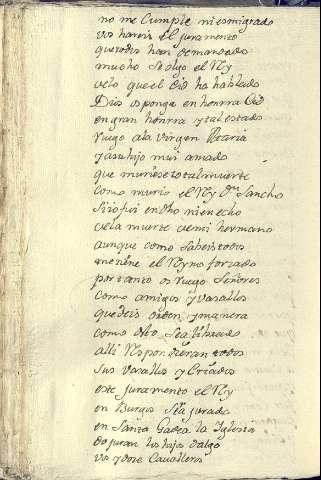 no me Cumple ni es mi grado
vos hareis El juramento
que todos han demandado
mucho Se olgo el Rey
velo que el Cid ha hablado
Dios os ponga en honrra Cid
en gran honrra y tal estado
ruego ala virgen Maria
y asu hijo mui amado
que muriese tal muerte
como murio el Rey Dn Sancho
Si io fui en dho ni en echo
vela muerte vemi hermano
aunque como Sabeis todos
me tiene el Reyno forzado
por tanto os ruego Señores
Como amigos y vasallos
que deis orden y manera
como desto Sea librado
alli Respondieran todos
Sus vasallos y Criados
este juramento el Rey
en Burgos Sea jurado
en Santa Gadea la Iglesia
do juran los hijos dalgo
vos y doze Cavalleros